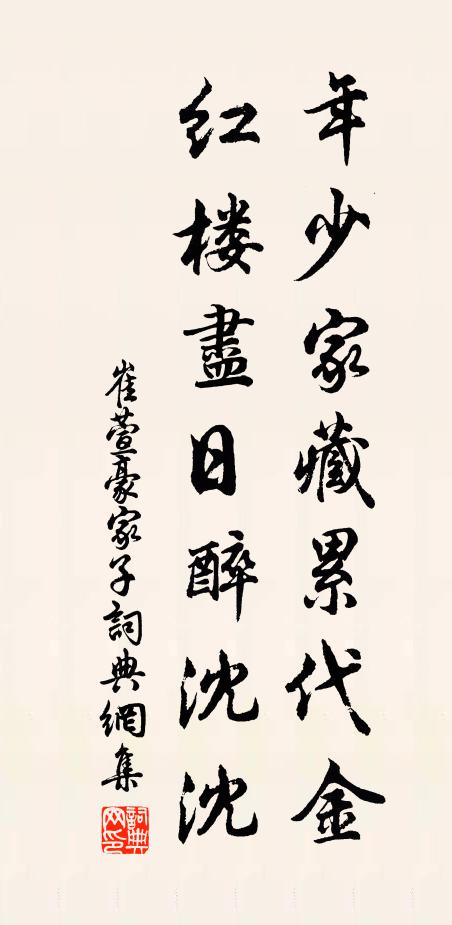 年少家藏累代金
红楼盡日醉沈沈
崔萱豪家子詞典網集
詞典网印